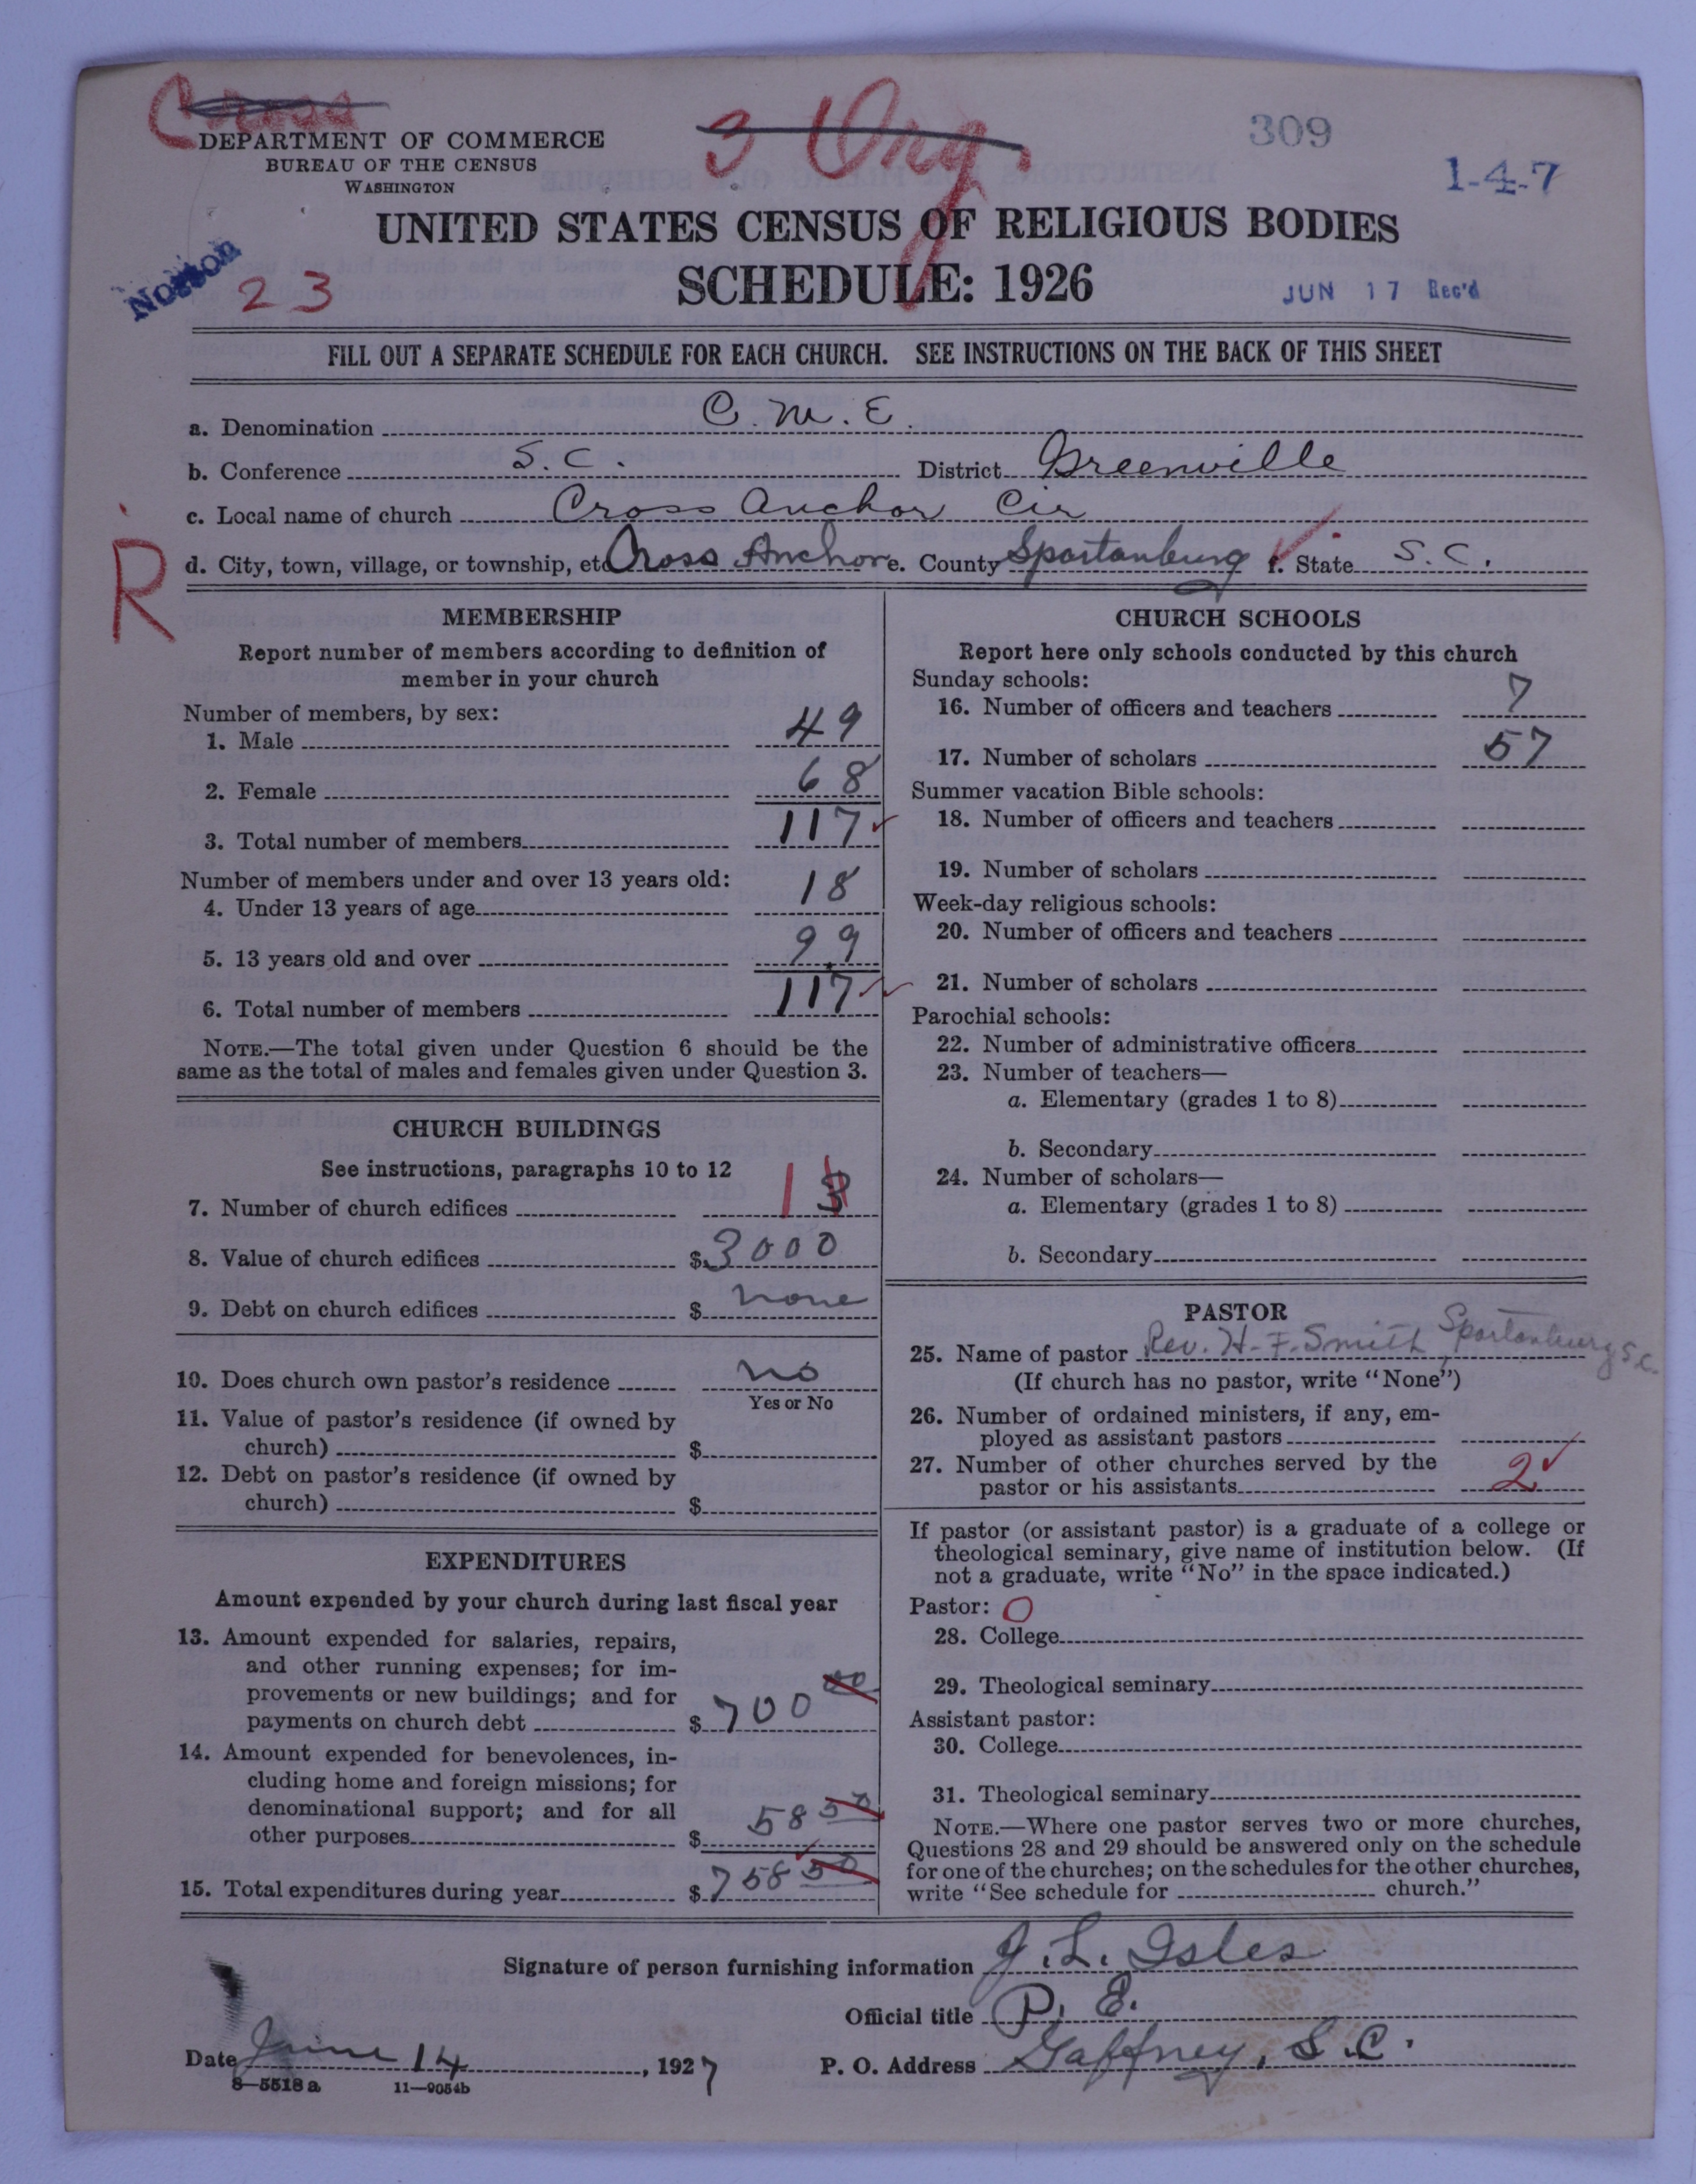 Cross
3 Org.
309
DEPARTMENT OF COMMERCE
BUREAU OF THE CENSUS
WASHINGTON
1-4-7
UNITED STATES CENSUS OF RELIGIOUS BODIES
Norton
23
SCHEDULE: 1926
JUN 17 Rec'd
FILL OUT A SEPARATE SCHEDULE FOR EACH CHURCH. SEE INSTRUCTIONS ON THE BACK OF THIS SHEET
a. Denomination C. M. E.
b. Conference S. C. District Greenville
c. Local name of church Cross Anchor Cir
R
d. City, town, village, or township, etc Cross Anchor e. County Spartanburg ✓ f. State S. C.
MEMBERSHIP
Report number of members according to definition of
member in your church
Number of members, by sex:
1. Male 49
2. Female 68
3. Total number of members 117 ✓
Number of members under and over 13 years old:
4. Under 13 years of age 18
5. 13 years old and over 99
6. Total number of members 117 ✓
NOTE.—The total given under Question 6 should be the
same as the total of males and females given under Question 3.
CHURCH BUILDINGS
See instructions, paragraphs 10 to 12
7. Number of church edifices 1 3
8. Value of church edifices $ 3000
9. Debt on church edifices $ none
10. Does church own pastor's residence no
Yes or No
11. Value of pastor's residence (if owned by
church) $
12. Debt on pastor's residence (if owned by
church) $
EXPENDITURES
Amount expended by your church during last fiscal year
13. Amount expended for salaries, repairs,
and other running expenses; for im-
provements or new buildings; and for
payments on church debt $ 700 00
14. Amount expended for benevolences, in-
cluding home and foreign missions; for
denominational support; and for all
other purposes $ 58 50
15. Total expenditures during year $ 758 50
CHURCH SCHOOLS
Report here only schools conducted by this church
Sunday schools:
16. Number of officers and teachers 7
17. Number of scholars 57
Summer vacation Bible schools:
18. Number of officers and teachers
19. Number of scholars
Week-day religious schools:
20. Number of officers and teachers
21. Number of scholars
Parochial schools:
22. Number of administrative officers
23. Number of teachers—
a. Elementary (grades 1 to 8)
b. Secondary
24. Number of scholars—
a. Elementary (grades 1 to 8)
b. Secondary
PASTOR
25. Name of pastor Rev. H. F. Smith, Spartanburg S.C.
(If church has no pastor, write "None")
26. Number of ordained ministers, if any, em-
ployed as assistant pastors
27. Number of other churches served by the
pastor or his assistants 2 ✓
If pastor (or assistant pastor) is a graduate of a college or
theological seminary, give name of institution below. (If
not a graduate, write "No" in the space indicated.)
Pastor: O
28. College
29. Theological seminary
Assistant pastor:
30. College
31. Theological seminary
NOTE.—Where one pastor serves two or more churches,
Questions 28 and 29 should be answered only on the schedule
for one of the churches; on the schedules for the other churches,
write "See schedule for church."
Signature of person furnishing information J. L. Isles
Official title P. E.
Date June 14, 1927 P. O. Address Gaffney, S. C.
8—5518a 11—9054b